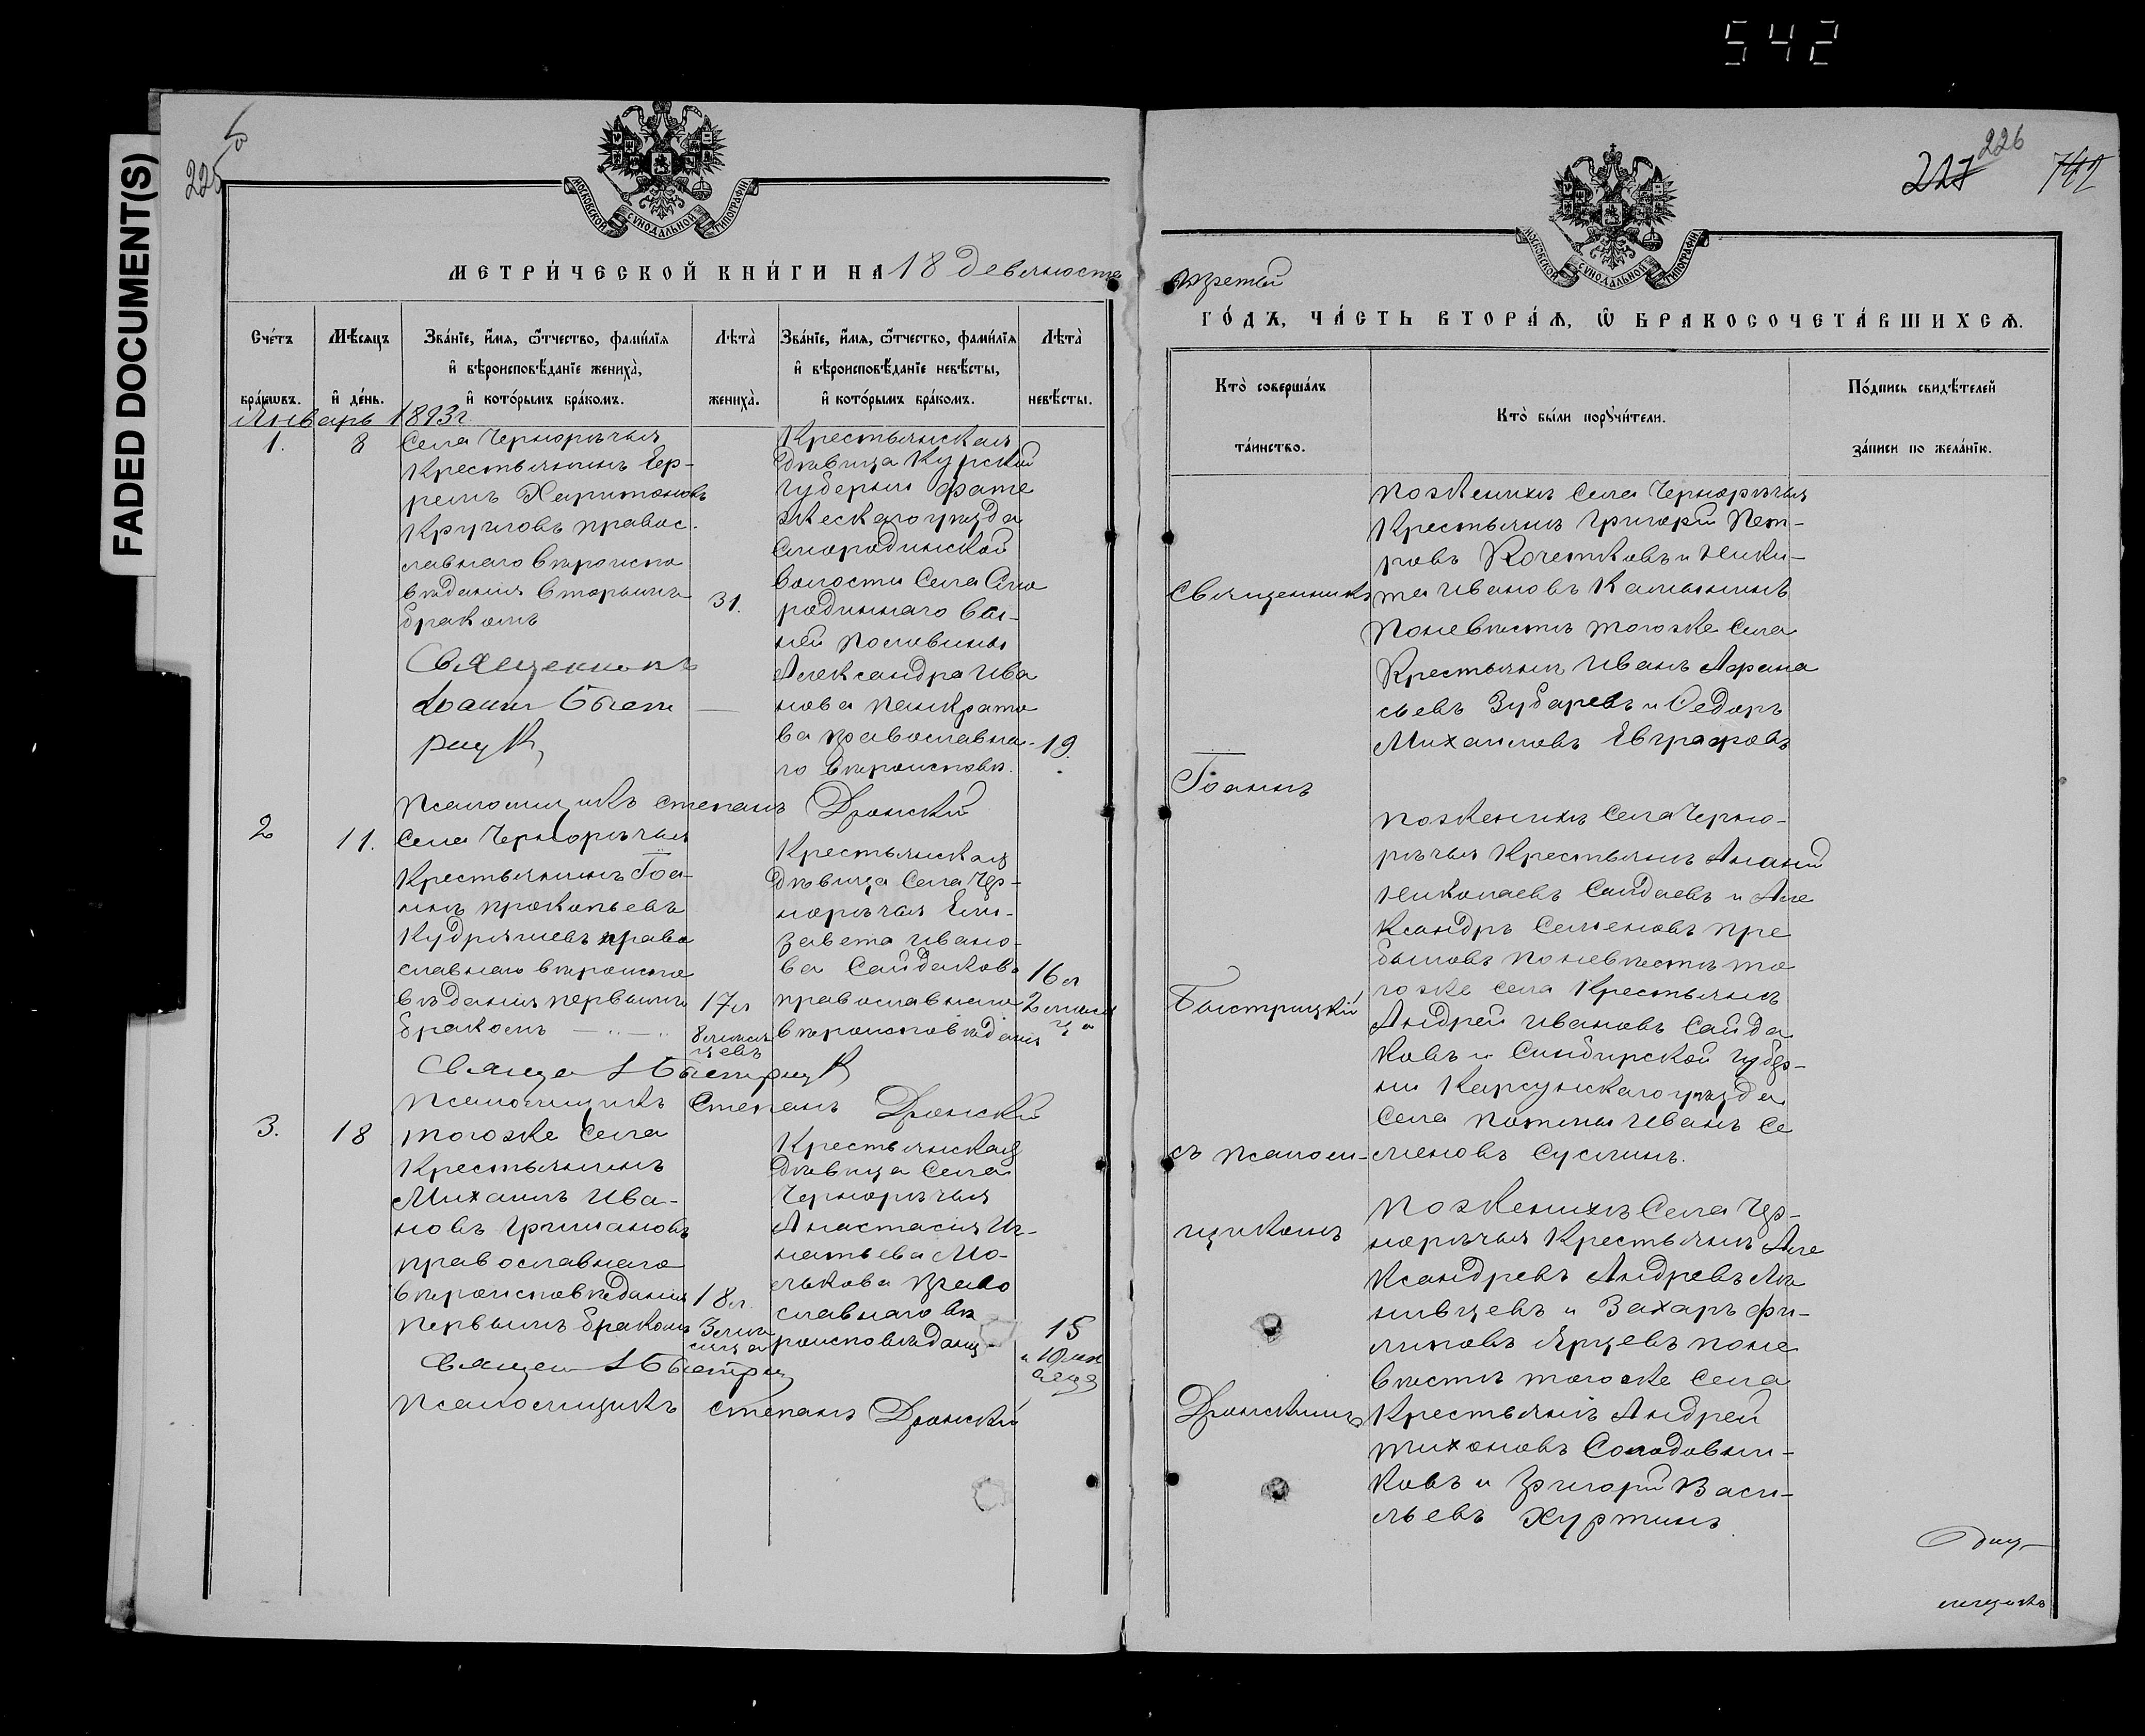 542
FADED DOCUMENT(S)
225
МОСКОВСКОЙ СУНОДАЛЬНОЙ ТИПОГРАФІИ
МЕТРИ́ЧЕСКОЙ КНИ́ГИ НА 18 девяносто
Сче́тъ бра́кѡвъ.
Мѣ́сяцъ и҆ де́нь.
Зва́нїе, и҆́мя, ѻ҆́тчество, фами́лїя
и҆ вѣроисповѣ́данїе жениха̀,
и҆ кото́рымъ бра́комъ.
Лѣта̀ жениха̀.
Зва́нїе, и҆́мя, ѻ҆́тчество, фами́лїя
и҆ вѣроисповѣ́данїе невѣ́сты,
и҆ кото́рымъ бра́комъ.
Лѣта̀ невѣ́сты.
Январь 1893 г.
1.
8
Села Чернорѣчья
Крестьянинъ
Харитоновъ
Кругловъ правос-
лавнаго вѣроиспо
вѣданія вторымъ
бракомъ
31.
Священникъ
Іоаннъ Быст
рицк
Крестьянская
дѣвица Курской
губерніи Фате
жескаго уѣзда
Смородинской
волости Села Смо
родиннаго
ней половины
Александра Ива
нова Панкрато
ва православна-
го вѣроисповѣ.
19.
Псаломщикъ Степанъ Дронскій
2
11.
Села Чернорѣчья
Крестьянинъ Іоа-
ннъ Прокопьевъ
Кудряшевъ право
славнаго вѣроиспо
вѣданія первымъ
бракомъ
17 л
8 мѣся
цевъ
Крестьянская
дѣвица Села Чер-
норѣчья Ели-
завета Ивано-
ва Сайдакова
православнаго
вѣроисповѣданія
16 л
2 мѣся
ца
Священ І Быстрицк
Псаломщикъ Степанъ Дронскій
3.
18
того же Села
Крестьянинъ
Михаилъ Ива-
новъ Гришановъ
православнаго
вѣроисповѣданія
первымъ бракомъ
18 л.
3 мѣ
сяца
Крестьянская
дѣвица Села
Чернорѣчья
Анастасія Иг-
натьева Мо-
лькова право
славнаго вѣ
роисповѣдані
15
и 10 мѣ
сяц
Священ І Быстриц
Псаломщикъ Степанъ Дронскій
227 226 742
МОСКОВСКОЙ СУНОДАЛЬНОЙ ТИПОГРАФІИ
третій
ГО́ДЪ, ЧА́СТЬ ВТОРА́Я, Ѡ҆ БРАКОСОЧЕТА́ВШИХСЯ.
Кто̀ соверша́лъ та́инство.
Кто̀ бы́ли порꙋчи́тели.
По́дпись свидѣ́телей за́писи по жела́нїю.
Священникъ
Іоаннъ
Быстрицкій
съ псалом-
щикомъ
Дронскимъ
По женихѣ Села Чернорѣчья
Крестьянъ Григорій Пет-
ровъ Кочетковъ и Ники-
та Ивановъ Калынинъ
По невѣстѣ того же Села
Крестьянъ Иванъ Афана
сьевъ Зубаревъ и Ѳедоръ
Михаиловъ Евграфовъ
По женихѣ Села Черно-
рѣчья Крестьянъ Ананій
Николаевъ Сайдаевъ и Але
ксандръ Семеновъ Пре
быловъ по невѣстѣ то
го же села Крестьянъ
Андрей Ивановъ Сайда
ковъ и Симбирской Губер-
ніи Карсунскаго уѣзда
Села Потьмы Иванъ Се
меновъ Суслинъ.
По женихѣ Села Чер-
норѣчья Крестьянъ Але
ксандревъ Андревъ
и Захаръ Фи-
липовъ Ярцевъ по не
вѣстѣ того же Села
Крестьянъ Андрей
Тихоновъ Солодовни-
ковъ и Григорій Васи-
льевъ Хуртинъ.